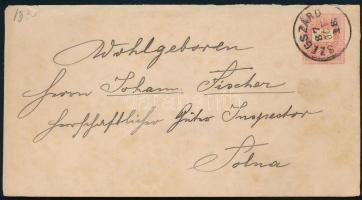 Wohlgeboren
Herrn Johann Fischer
herrschaftlicher Güter Inspector
Tolna
SZEGSZÁRD
87